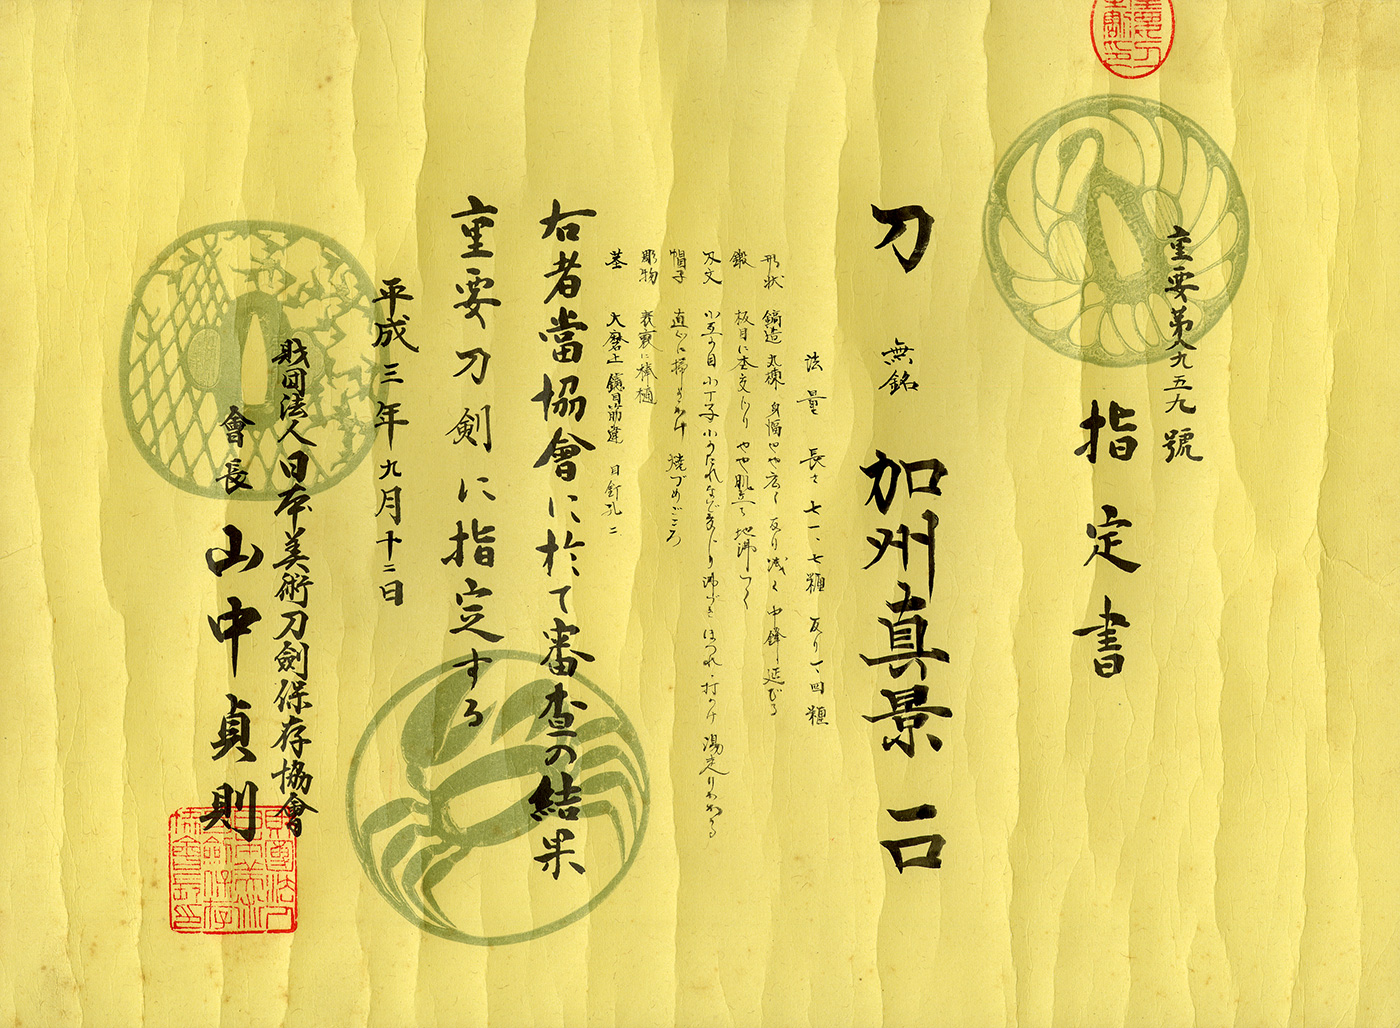 重要第八九五九號
指定書
刀 無銘 加州真景 一口
法量 長さ 七一、七糎 反り 一、四糎
形状 鎬造 丸棟 身幅やや広く 反り浅く 中鋒延びる
鍛 板目に杢交じり やや肌立つ 地沸つく
刃文 小互の目 小丁子 小のたれなど交じり 沸づき ほつれ・打のけ 湯走りかかる
帽子 直ぐに掃きかけ 焼づめごころ
彫物 表裏に棒樋
茎 大磨上 鑢目筋違 目釘孔二
右者當協會に於て審査の結果
重要刀剣に指定する
平成三年九月十二日
財団法人日本美術刀劍保存協會
會長 山中貞則